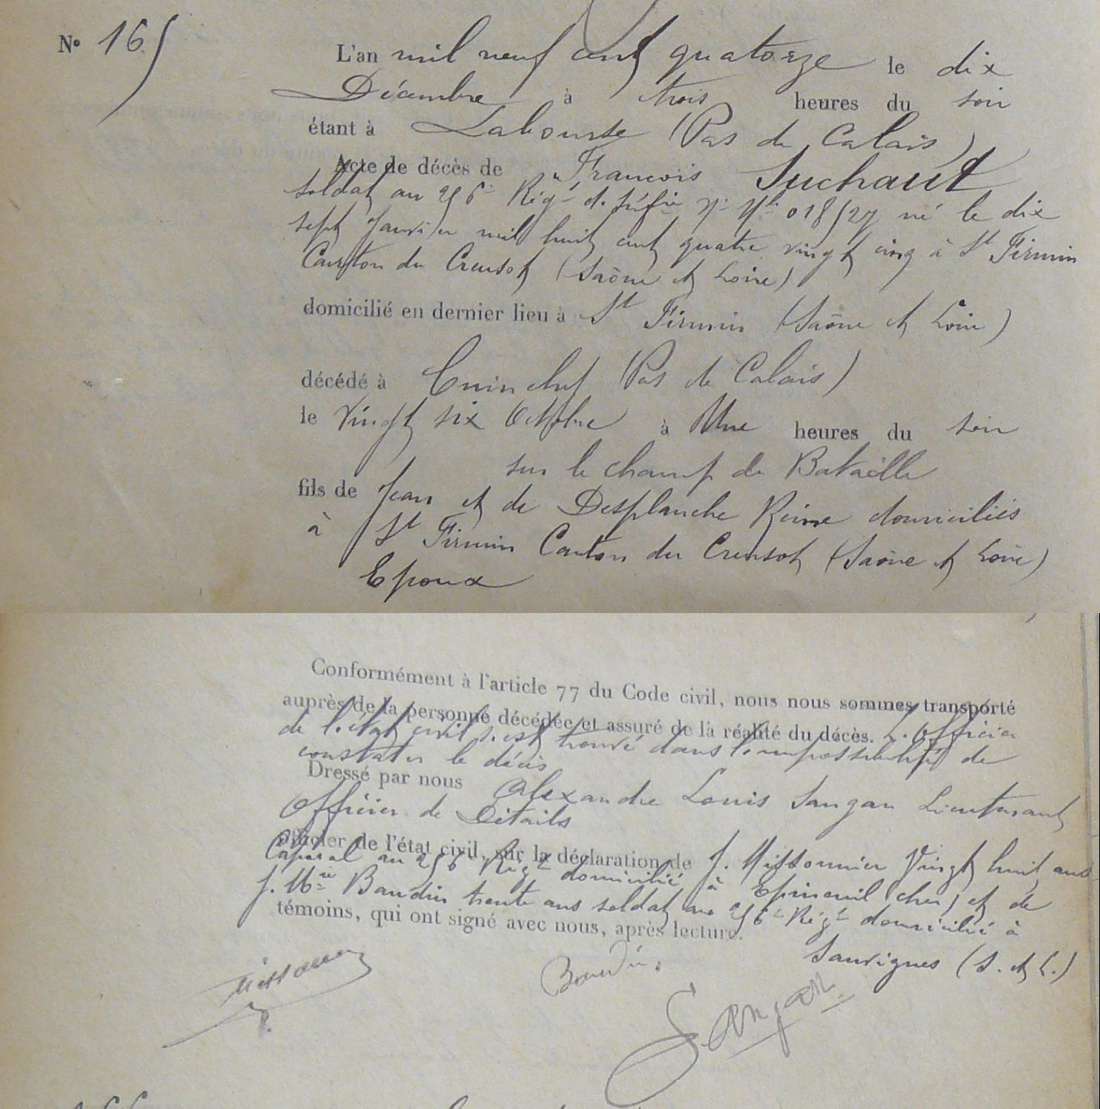 N° 165
L'an mil neuf cent quatorze le dix
Décembre à trois heures du soir
étant à Labourse (Pas de Calais)
Acte de décès de François Suchaut
soldat au 256e Régt d'Infie né le dix
sept Janvier mil huit cent quatre vingt cinq à St Firmin
Canton du Creusot (Saône et Loire)
domicilié en dernier lieu à St Firmin (Saône et Loire)
décédé à Cuinchy (Pas de Calais)
le vingt six Octobre à Une heures du soir
sur le champ de Bataille
fils de Jean et de Desplanche Reine domiciliés
à St Firmin Canton du Creusot (Saône et Loire)
Epoux
Conformément à l'article 77 du Code civil, nous nous sommes transporté
auprès de la personne décédée et assuré de la réalité du décès. L'officier
de l'état civil s'est trouvé dans l'impossibilité de
constater le décès
Dressé par nous Alexandre Louis Sangan Lieutenant
Officier de Détails
officier de l'état civil, sur la déclaration de J. Missonnier Vingt huit ans
Caporal au 256e Régt domicilié à Epineuil (cher) et de
J. Mie Baudin trente ans soldat au 256e Régt domicilié à
témoins, qui ont signé avec nous, après lecture.
Sanvignes (S. et L.)
Baudin
Sangan